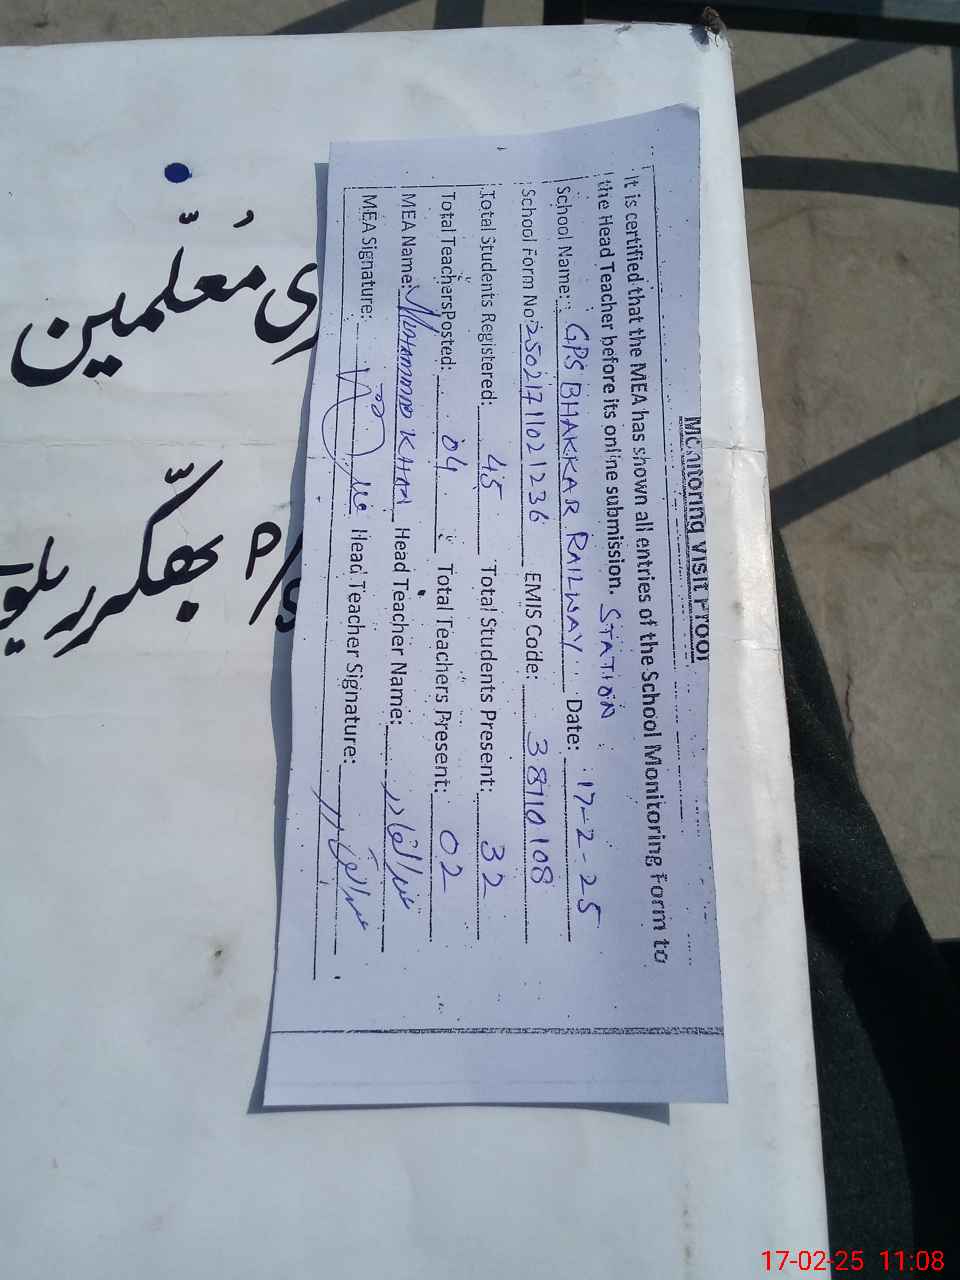 Monitoring Visit Proof
It is certified that the MEA has shown all entries of the School Monitoring Form to
the Head Teacher before its online submission. STATION
School Name: GPS BHAKKAR RAILWAY Date: 17-2-25
School Form No: 2502171021236 EMIS Code: 38110108
Total Students Registered: 45 Total Students Present: 32
Total TeachersPosted: 04 Total Teachers Present: 02
MEA Name: MUHAMMAD KHAN Head Teacher Name: عبدالقادر
MEA Signature: Head Teacher Signature:
مُعلّمین
بھکّر ریلو
17-02-25 11:08